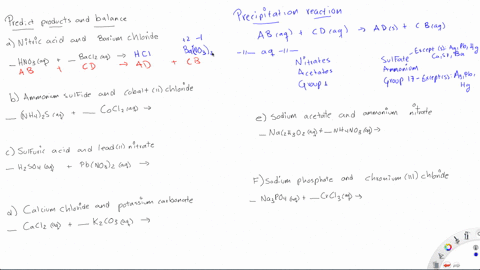 Predict products and balance
a) Nitric acid and Barium chloride
+2 -1
__ HNO3 (aq) + __ BaCl2 (aq) → HCl Ba(NO3)2
AB + CD → AD + CB
b) Ammonium sulfide and cobalt (ii) chloride
__ (NH4)2S (aq) + __ CoCl2 (aq) →
c) Sulfuric acid and lead(ii) nitrate
__ H2SO4 (aq) + Pb(NO3)2 (aq) →
d) Calcium chloride and potassium carbonate
__ CaCl2 (aq) + __ K2CO3 (aq) →
Precipitation reaction
AB (aq) + CD (aq) → AD (s) + CB (aq)
-11- aq -11-
Nitrates
Acetates
Group 1
Sulfate - Except (s): Ag, Pb, Hg
Ca, Sr, Ba
Ammonium
Group 17 - Except (s): Ag, Pb,
Hg
e) Sodium acetate and ammonium nitrate
__ Na C2H3O2 (aq) + __ NH4NO3 (aq) →
F) Sodium phosphate and chromium (iii) chloride
__ Na3PO4 (aq) + __ CrCl3 (aq) →